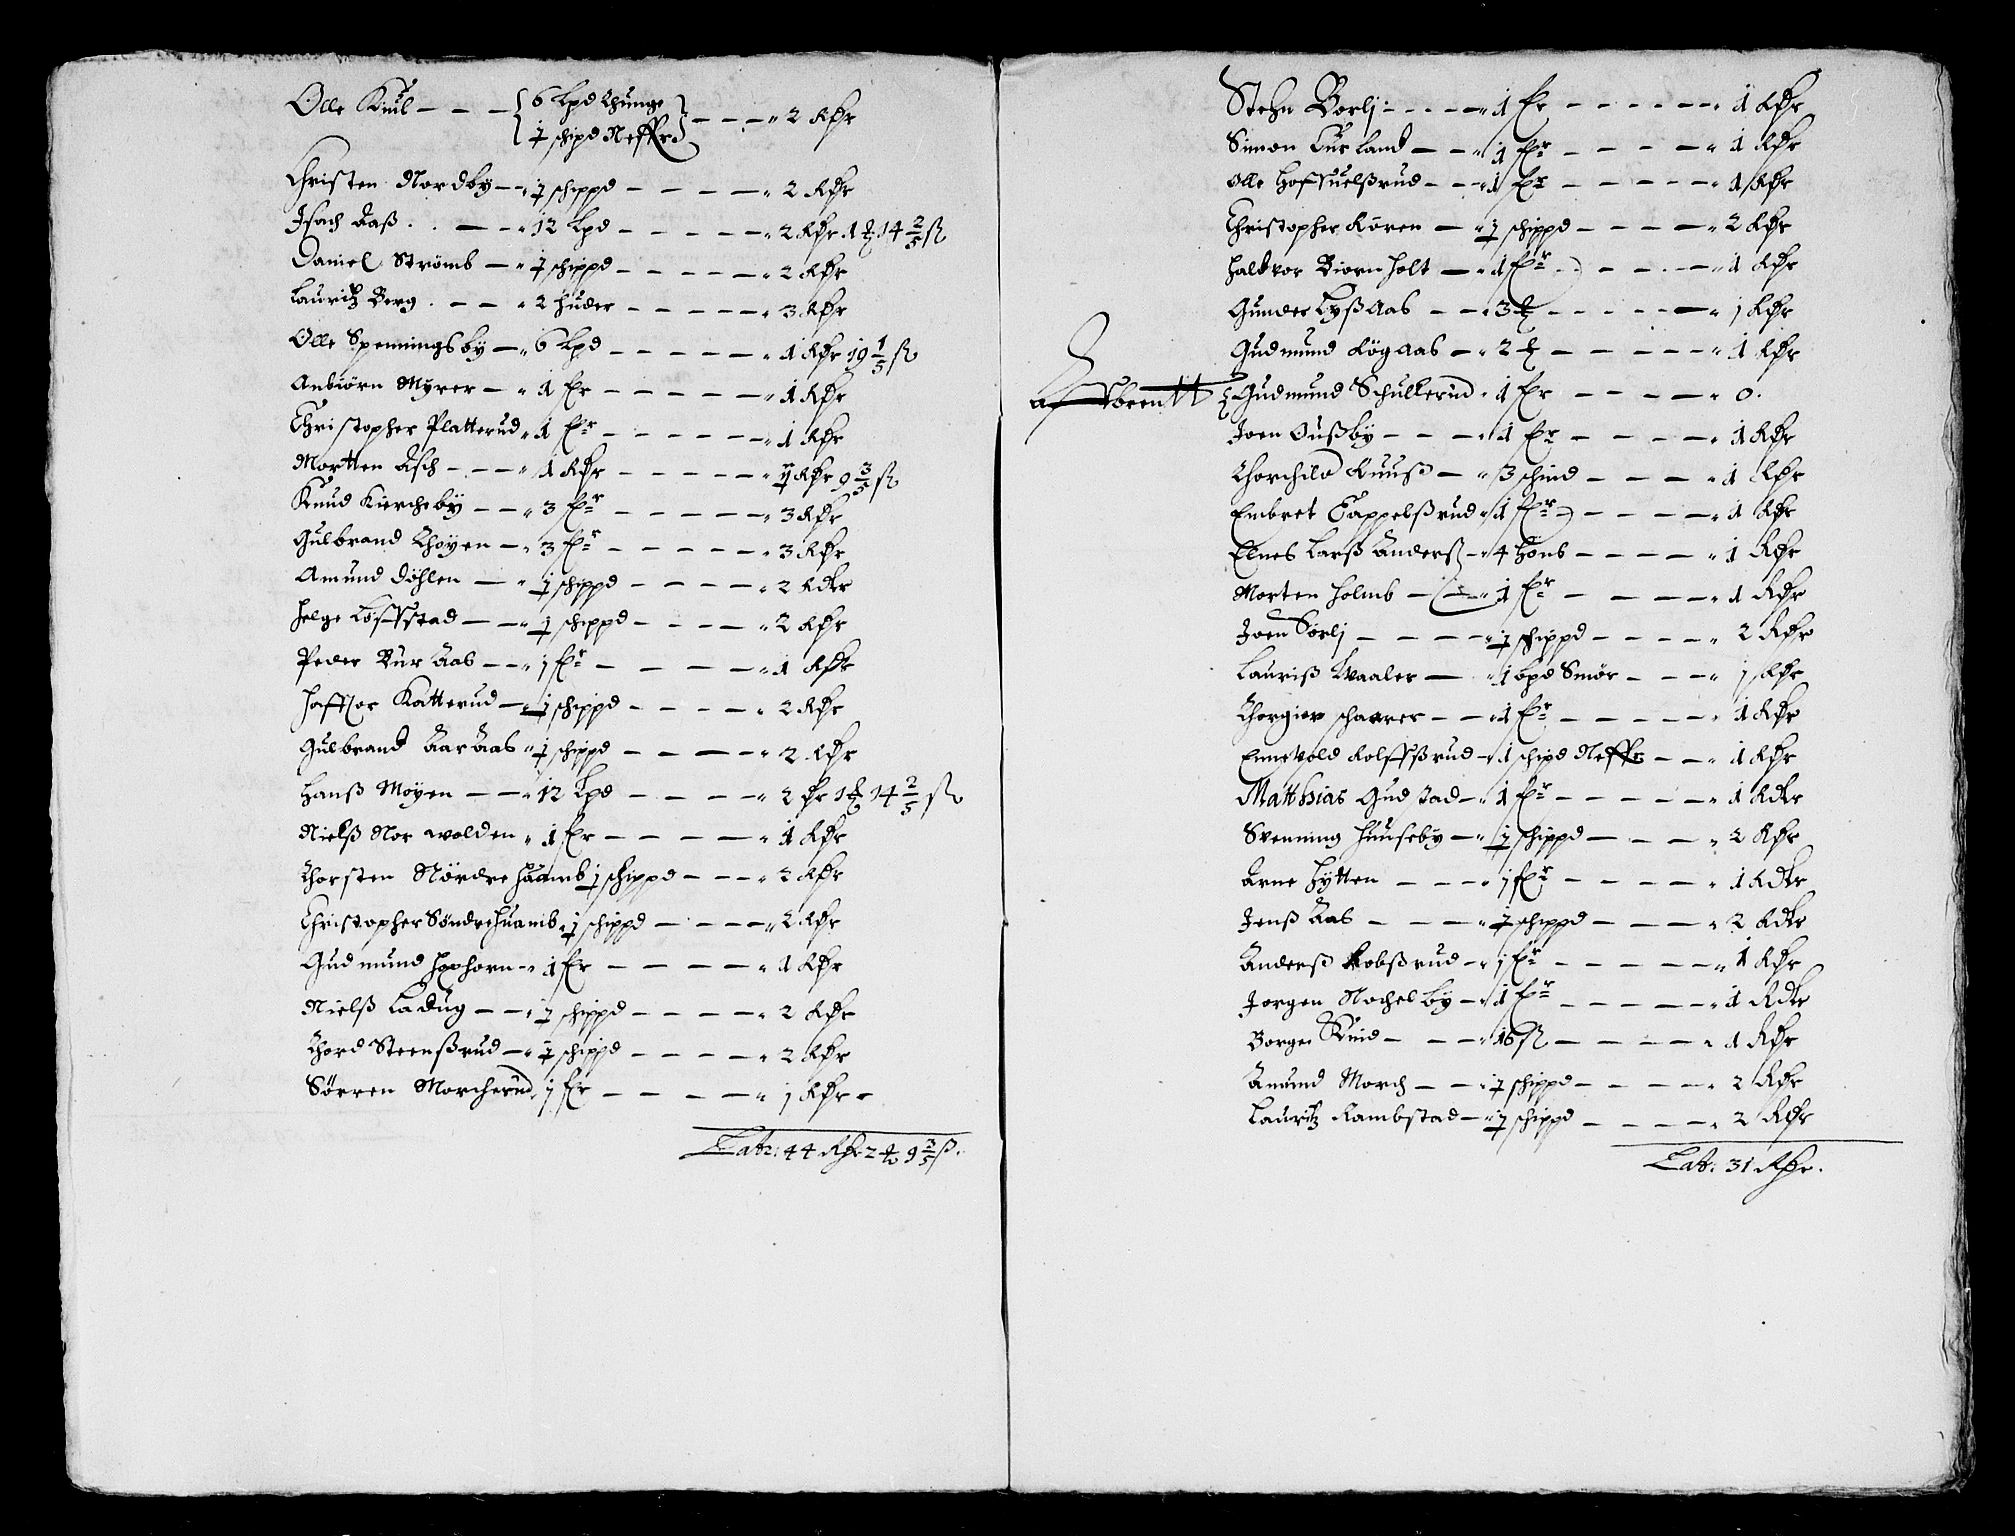 Olle Kiül - - - { 6 Lpd thunge
1/2 schipd Neffr } - - - 2 Rdr
Christen Nordby - 1/2 schippd - - - - 2 Rdr
Isach Aaß . . - - 12 Lpd - - - - - 2 Rdr 1 ort 14 2/5 ß
Daniel Strömb - 1/2 schippd - - - - 2 Rdr
Lauritz Berg . - - - 2 hüder - - - - 3 Rdr
Olle Spenningsby - 6 Lpd - - - - - 1 Rdr 19 1/5 ß
Anbiörn Myrer - 1 Fr - - - - - 1 Rdr
Christopher Platterud 1 Fr - - - - - 1 Rdr
Mortten Asch - - - 1 Rdr - - - - - Rdr 9 3/5 ß
Knud Kiercheby - - 3 Fr - - - - - 3 Rdr
Gulbrand Thoyen - 3 Fr - - - - - 3 Rdr
Amund döhlen - 1/2 schippd - - - - 2 Rdlr
Helge Löffstad - - 1/2 schippd - - - - 2 Rdr
Peder Bur Aas - - 1 Fr - - - - - 1 Rdr
Hafflor Katterud - 1/2 schippd - - - - 2 Rdr
Gulbrand Aar Aas 1/2 schippd - - - - 2 Rdr
Hanß Moyen - - 12 Lpd - - - - 2 dr 1 ort 14 2/5 ß
Nielß Nor wolden 1 Fr - - - - - 1 Rdr
Thorsten Nördre Huamb 1/2 schippd - - - 2 Rdr
Christopher Söndre Huamb 1/2 schippd - - - 2 Rdr
Gudmund Hoxhorn - 1 Fr - - - - - 1 Rdr
Nielß Ladüg - - 1/2 schippd - - - - 2 Rdr
Thord Steenßrud - 1/2 schippd - - - - 2 Rdr
Sörren Morcherud 1 Fr - - - - - 1 Rdr -
Lat: 44 Rdr 2 ort 9 3/5 ß.
Stehn Borlj: - - - - 1 Fr - - - - - 1 Rdr
Simon Curland - - 1 Fr - - - - 1 Rdr
Olle Hoffuelßrud - - 1 Fr - - - - - 1 Rdr
Christopher Kören - 1/2 schippd - - - - 2 Rdr
Halvor Biornholt - 1 Fr - - - - 1 Rdr
Gunder Lyßaas - - 3 ort - - - - - 1 Rdr
Gudmund Rögaas - 2 ort - - - - - 1 Rdr
Affbrentt { Gudmund Schullerud 1 Fr - - - - 0.
Joen Oußby - - - 1 Fr - - - - 1 Rdr
Thorchild Ruuß - 3 schind - - - - 1 Rdr
Embret Tappelßrud 1 Fr - - - - 1 Rdr
Elnes Larß Anderß - 4 Höns - - - - 1 Rdr
Morten Holmb - - 1 Fr - - - - 1 Rdr
Joen Sörlj - - - - 1/2 schippd - - - - 2 Rdr
Lauriß Waaler - 1 bpd Smör - - - 1 Rdr
Thorgier schaarer - - 1 Fr - - - - - 1 Rdr
Ennevold Rolffßrud - 1 schipd Neffr - - 1 Rdr
Matthias Gudstad - 1 Fr - - - - - 1 Rdlr
Svenning Huuseby - 1/2 schippd - - - 2 Rdr
Arne Hytten - - - 1 Fr - - - - 1 Rdlr
Jenß Aas - - - - 1/2 schippd - - - 2 Rdlr
Anderß Robßrud - 1 Fr - - - - - 1 Rdr
Jorgen Nochelby - 1 Fr - - - - - 1 Rdlr
Borge Ruud - - - 16 ß - - - - - 1 Rdr
Anund Morch - - 1/2 schippd - - - - 2 Rdr
Lauritz Rambstad - 1/2 schippd - - - - 2 Rdr
Lat: 31 Rdr.